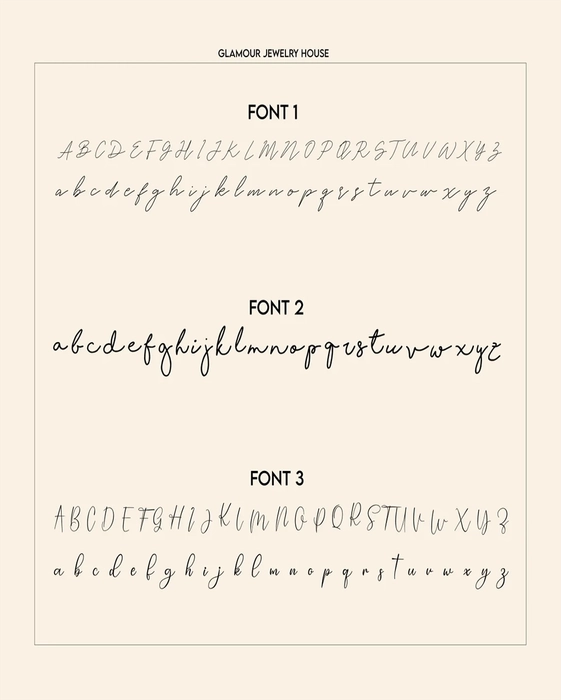 GLAMOUR JEWELRY HOUSE
FONT 1
A B C D E F G H I J K L M N O P Q R S T U V W X Y Z
a b c d e f g h i j k l m n o p q r s t u v w x y z
FONT 2
a b c d e f g h i j k l m n o p q r s t u v w x y z
FONT 3
A B C D E F G H I J K L M N O P Q R S T U V W X Y Z
a b c d e f g h i j k l m n o p q r s t u v w x y z